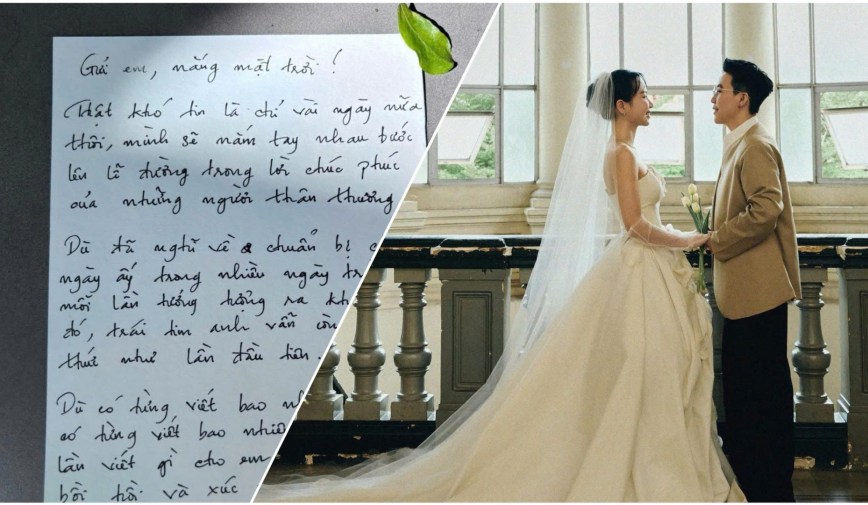 Gửi em, nắng mặt trời!
Thật khó tin là chỉ vài ngày nữa
thôi, mình sẽ nắm tay nhau bước
lên lễ đường trong lời chúc phúc
của những người thân thương
Dù đã nghĩ về & chuẩn bị c
ngày ấy trong nhiều ngày tr
mỗi lần tưởng tượng ra kh
đó, trái tim anh vẫn còn
thức như lần đầu tiên.
Dù có từng viết bao nh
có từng viết bao nhiê
lần viết gì cho em
bồi hồi và xúc